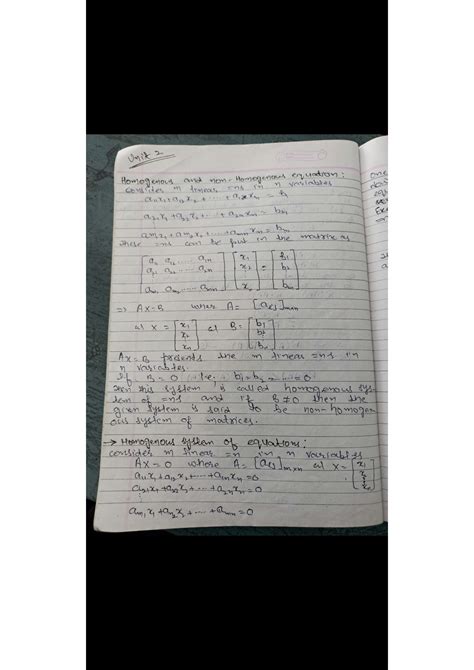 Unit 2
Homogenous and non-Homogenous equation:
consider m linear =ns in n variables
a11x1+a12x2+.....+a1nxn = b1
a21x1+a22x2+.....+a2nxn = b2
am1x1+am2x2+.....+amnxn = bm
These =ns can be put in the matrix as
[a11 a12 ..... a1n] [x1] [b1]
[a21 a22 ..... a2n] [x2] = [b2]
[am1 am2 ..... amn] [xn] [bm]
=> AX=B where A= [aij]m×n
X = [x1 x2 xn] B= [b1 b2 bm]
AX=B presents the m linear =ns in
n variables.
If B=0 i.e. b1=b2=.....=0
then this system is called homogenous sys-
tem of =ns and if B≠0 then the
given system is said to be non-homogen
ous system of matrices.
→ Homogenous system of equations:
consider m linear =n in n variables
AX=0 where A= [aij]m×n X= [x1 x2 xn]
a11x1+a12x2+.....+a1nxn=0
a21x1+a22x2+.....+a2nxn=0
am1x1+am2x2+.....+amn=0